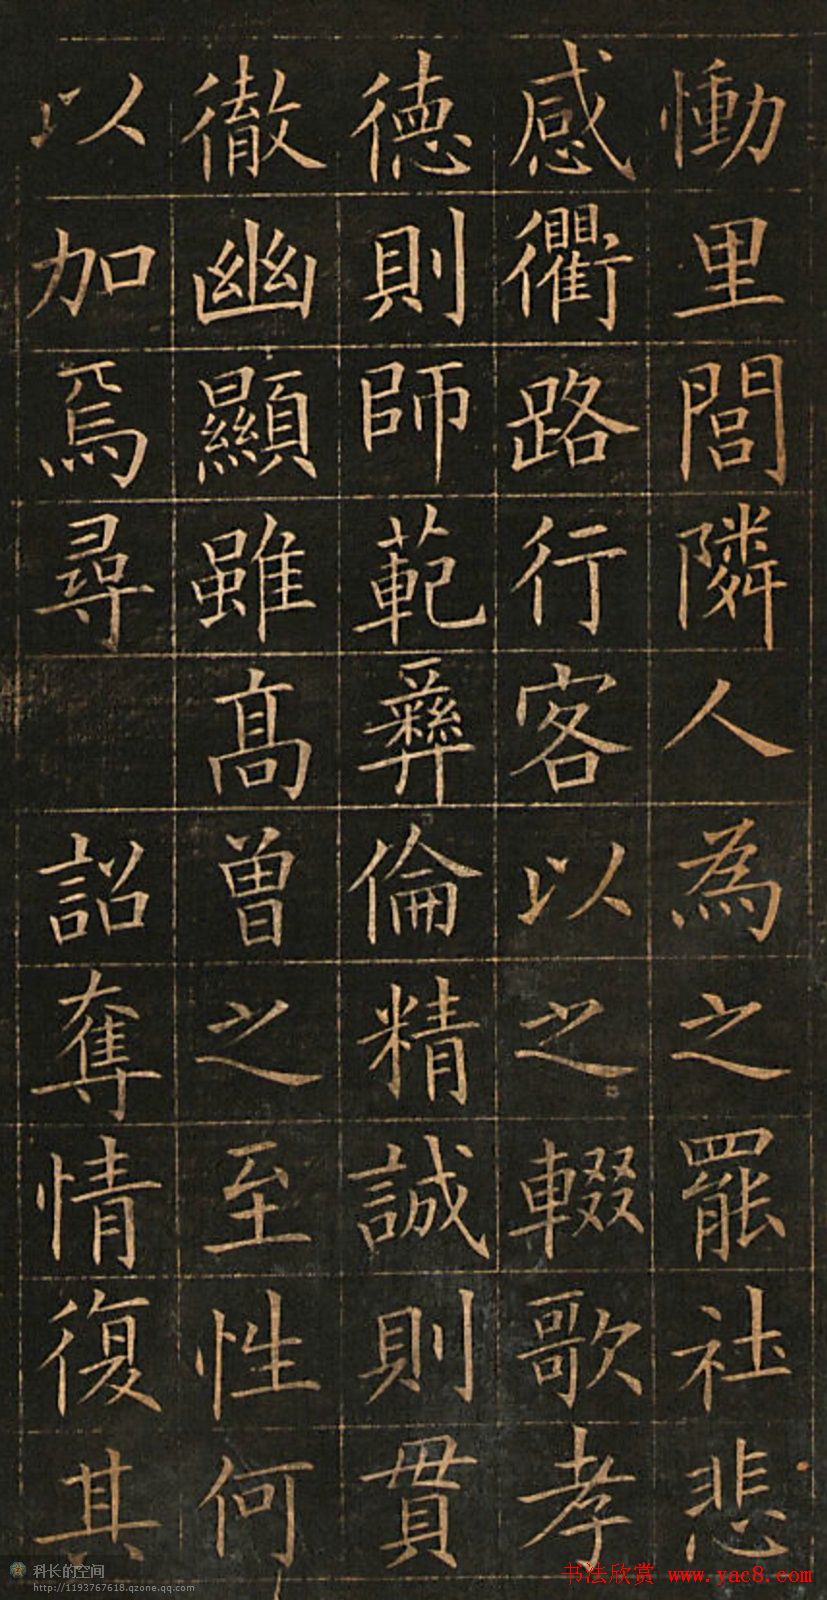 慟里閭隣人為之罷社悲
感衢路行客以之輟歌孝
德則師範彝倫精誠則貫
徹幽顯雖高曽之至性何
以加焉尋 詔奪情復其
科长的空间
http://1193767618.qzone.qq.com
书法欣赏 www.yac8.com